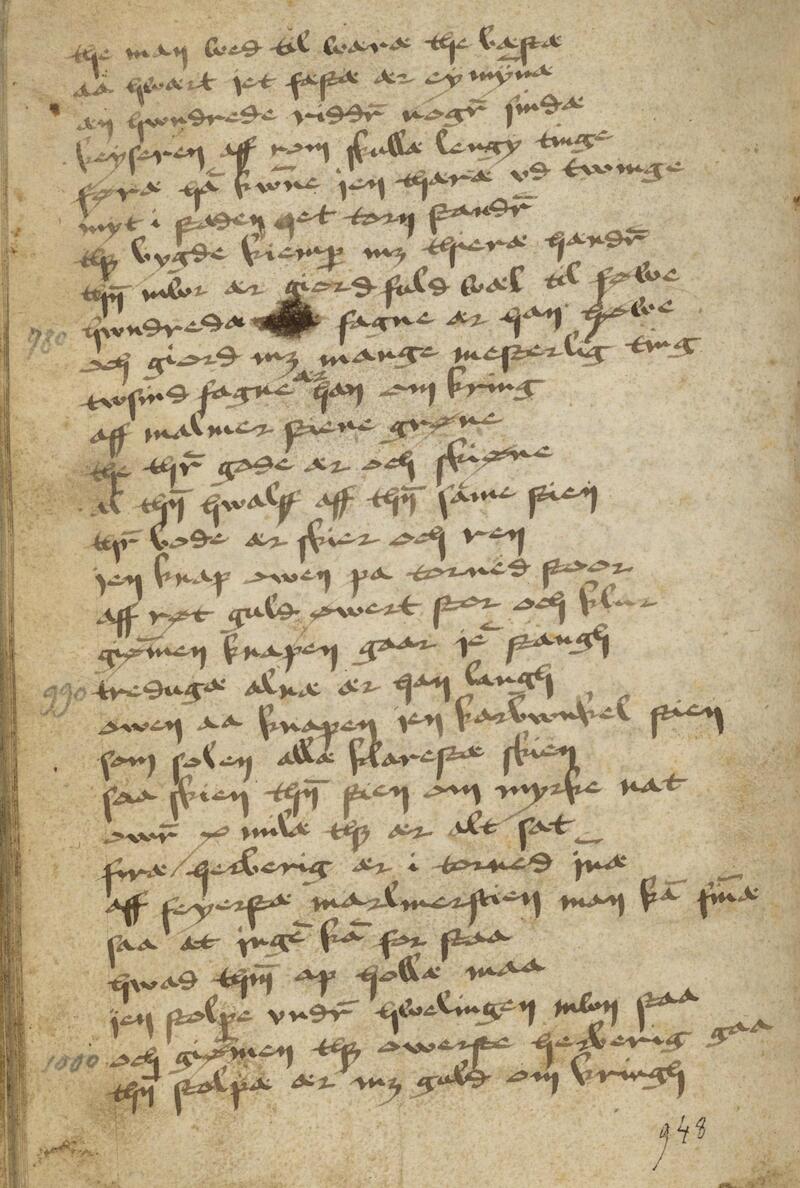 the man wed til wæræ the bæstæ
aa hwært jet fæstæ ær ey mỹnæ
æn hwndrede riddr̄ nogr̄ sindæ
keyseren aff rom skullæ lengy tinge
føræ hā kwn̄e jen tharæ vd twinge
myt i staden het torn standr̄
thʒ bygde kiemp̄ mʒ thieræ handr̄
thn̄ mwr ær giord fuld wæl til føwe
hwndredæ fagne ær han høwe
780
och giord mʒ mange mesterlig ting
twsind fagne ær han om kring
aff malmer stene grøne
the thr̄ gode ær och skiøne
al thn̄ hwalff aff thn̄ sāme stien
thr̄ bode ær skier och ren
jen knap owen pa torned stoor
aff røt guld øwert stor och klar
giøm̄en knapen gaar jē stangh
990 tredugæ alnæ ær han langh
owen aa knapen jen karbwnkel stien
som solen allæ klarestæ skien
saa skien thn̄ stien om myrke nat
owr̄ x milæ thʒ ær alt sat
firæ herberig ær i torned jn̄æ
aff feyerstæ marlmerstien man kā fin̄æ
saa at jngē kā for staa
hwad thm̄ ap hollæ maa
jen stolpe vndr̄ hwelingen mwn staa
1000 och giøm̄en thʒ owerste herberig gaa
thn̄ stolpæ ær mʒ guld om kringh
948